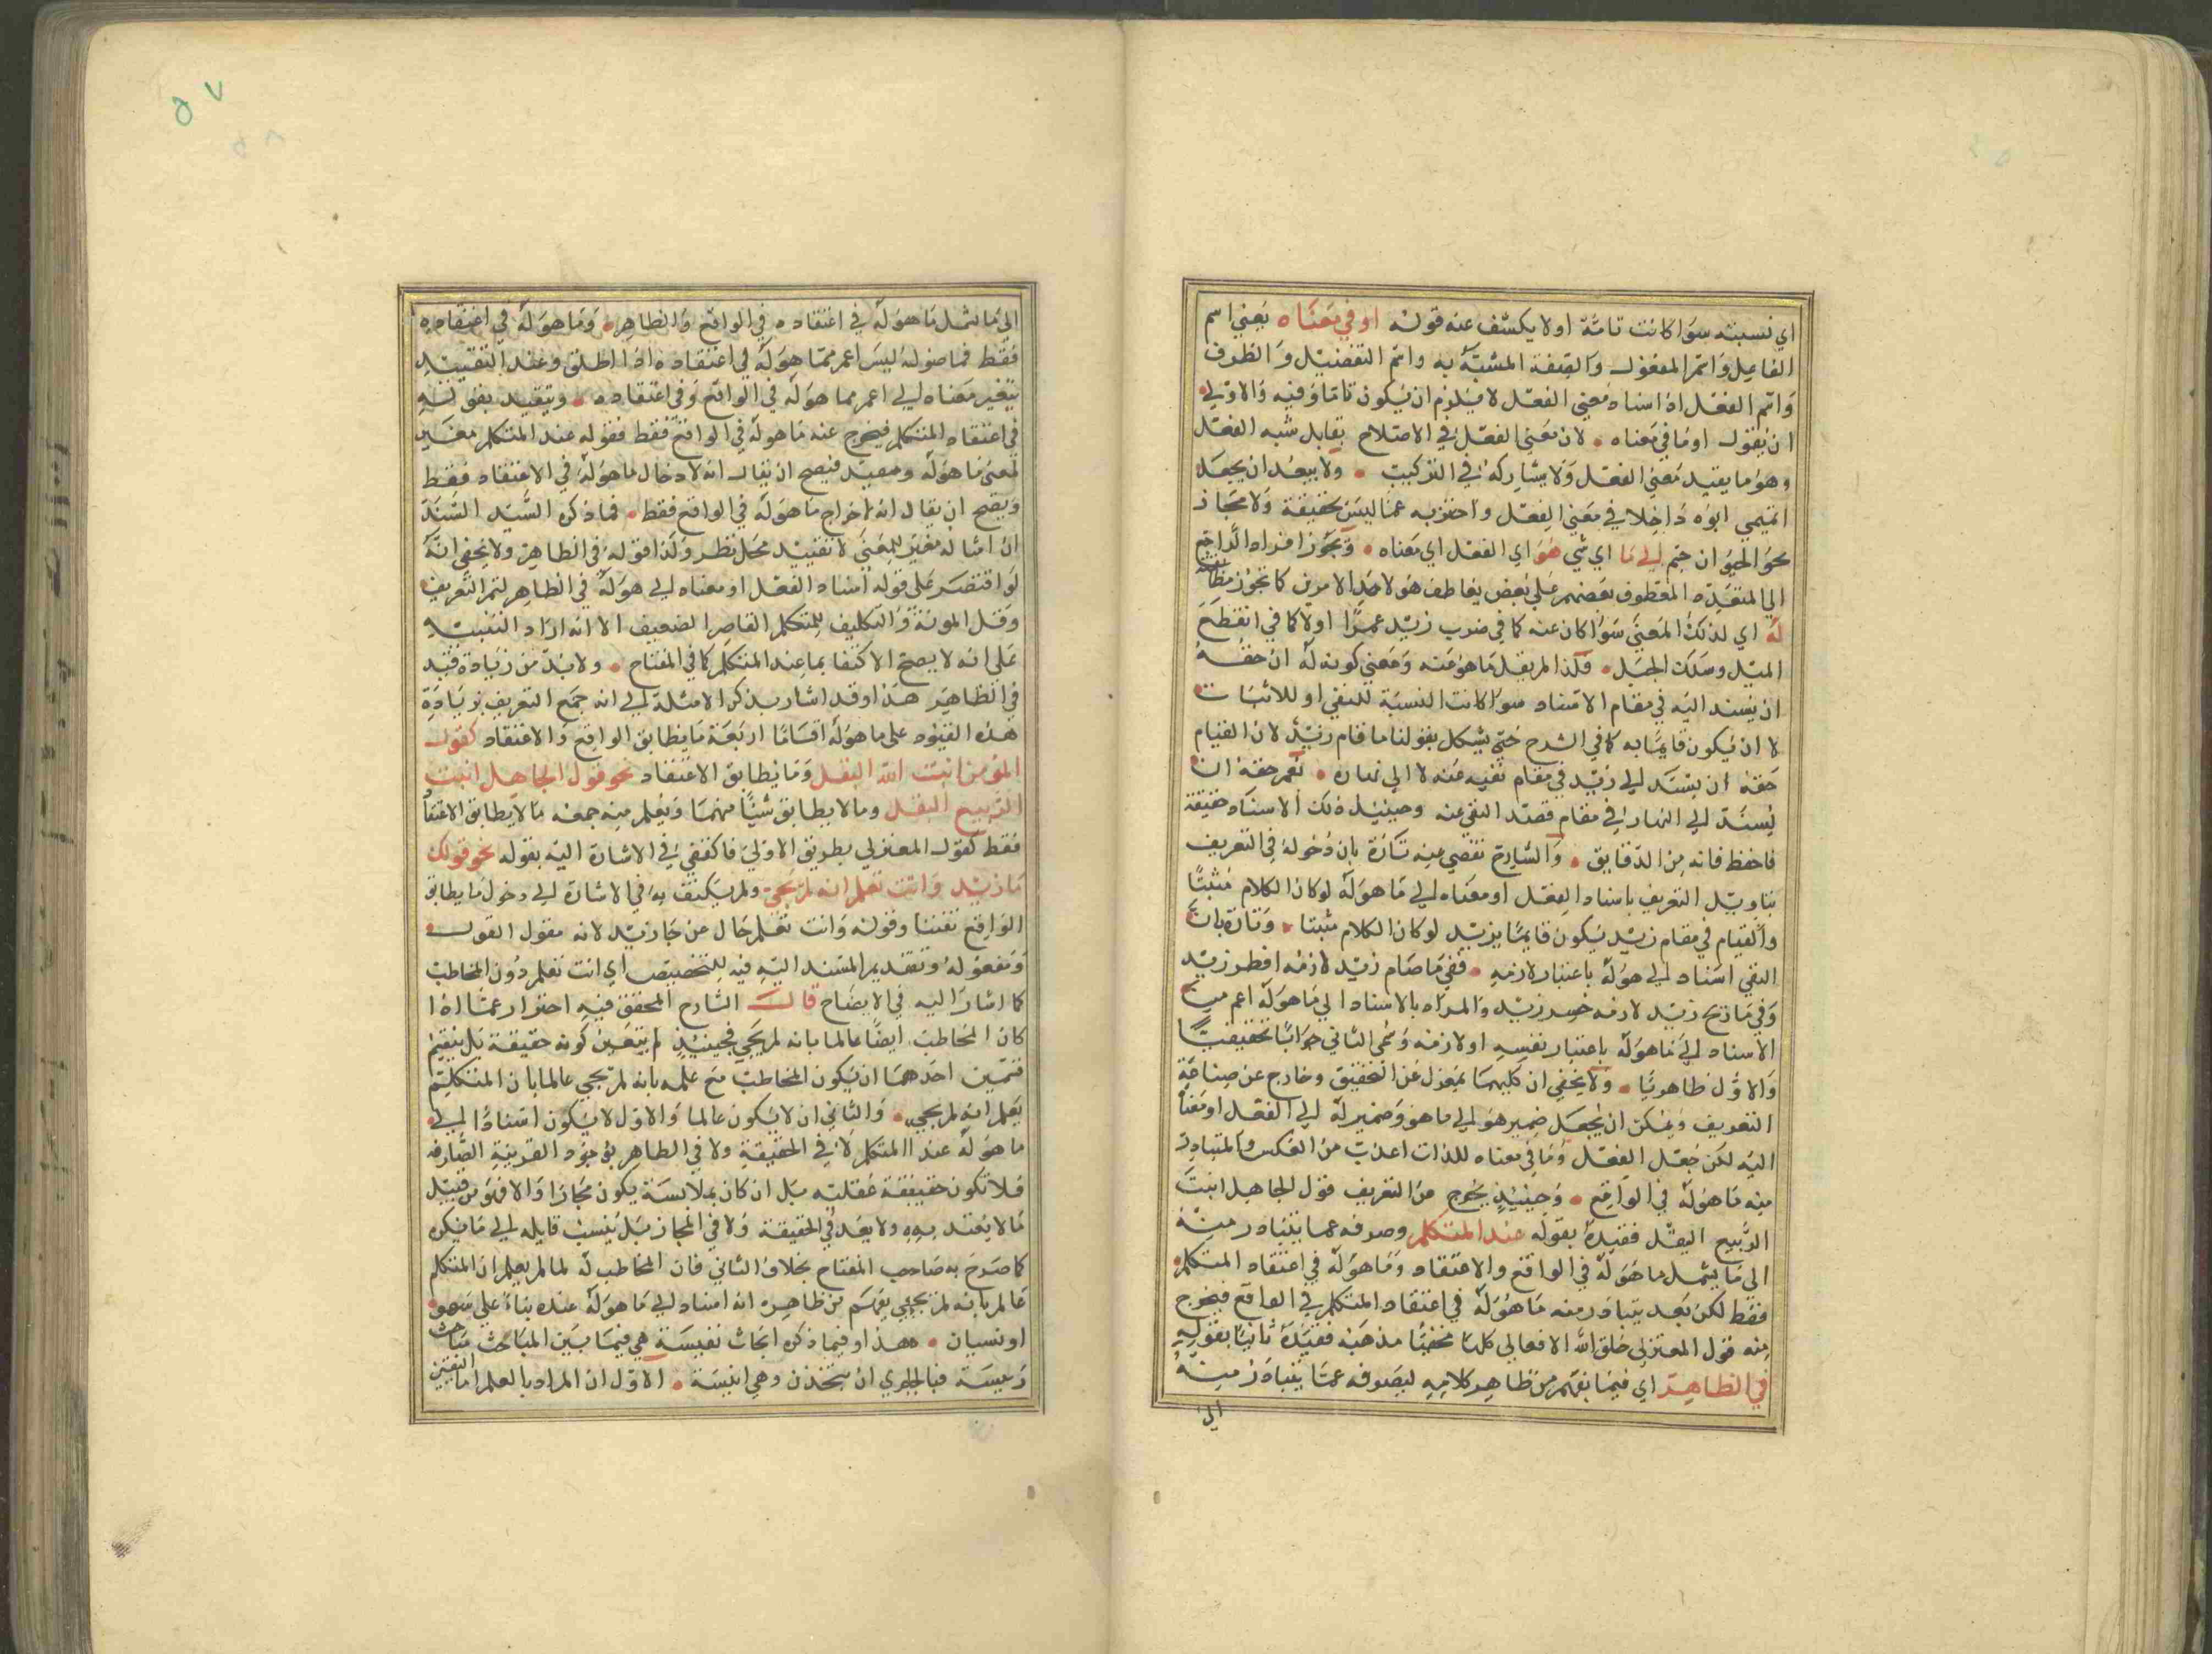 اي نسبته سوا كانت تامة اولا يكشف عنه قوله او في معناه يعني اسم
الفاعل واسم المفعول والصفة المشبهة به واسم التفضيل والظرف
واسم الفعل اذ اسناد معنى الفعل لا يلزم ان يكون تاما وفيه والاولى
ان يقول او ما في معناه لان معنى الفعل في الاصطلاح يقابل شبه الفعل
وهو ما يفيد معنى الفعل ولا يشاركه في التركيب ولا يبعد ان يجعل
اتميمي ابوه داخلا في معنى الفعل واحترز به عما ليس بحقيقة ولا مجاز
نحو الحيوان جسم الى ما اي شي هو اي الفعل اي معناه ويجوز افراد الراجع
الى المتعدد المعطوف بعضهم على بعض بعاطف هو لاحد الامرين كما تجوز مطابقته
له اي لذلك المعنى سوا كان عنه كما في ضرب زيد عمرا اولا كما في انقطع
الميل وسلك الجبل فلذا لم يقل ما هو عنه ومعنى كونه له ان حقه
ان يسند اليه في مقام الاسناد سوا كانت النسبة للنفي او للاثبات
لا ان يكون قايما به كما في الشرح حتى يشكل بقولنا ما قام زيد لان القيام
حقه ان يسند الى زيد في مقام نفيه عنه لا الى نهاره نعم حقه ان
يسند الى النهار في مقام قصد النفي عنه وحينيذ ذلك الاسناد حقيقة
فاحفظ فانه من الدقايق والشارح تفصي عنه تارة بان دخوله في التعريف
بتاويل التعريف باسناد الفعل او معناه الى ما هو له لو كان الكلام مثبتا
والقيام في مقام زيد يكون قايما بزيد لو كان الكلام مثبتا وتارة بان
النفي اسناد الى هو له باعتبار لازمه ففي ما صام زيد لازمه افطر زيد
وفي ما ربح زيد لازمه خسر زيد والمراد بالاسناد الى ما هو له اعم من
الاسناد الى ما هو له باعتبار نفسه او لازمه وسمى الثاني جوابا تحقيقيا
والاول ظاهريا ولا يخفى ان كليهما بمعزل عن التحقيق وخارج عن صناعة
التعريف ويمكن ان يجعل ضمير هو الى ما هو وضمير له الى الفعل او معناه
اليه لكن جعل الفعل وما في معناه للذات اعذب من العكس والمتبادر
منه ما هو له في الواقع وحينيذ يخرج من التعريف قول الجاهل انبت
الربيع البقل فقيده بقوله عند المتكلم وصرفه عما يتبادر منه
الى ما يشمل ما هو له في الواقع والاعتقاد وما هو له في اعتقاد المتكلم
فقط لكن بعد يتبادر منه ما هو له في اعتقاد المتكلم في الواقع فيخرج
منه قول المعتزلي خلق الله الافعال كلها مخفيا مذهبه فقيده ثانيا بقوله
في الظاهر اي فيما يفهم من ظاهر كلامه ليصرفه عما يتبادر منه
الى
٥٧
الى ما يشمل ما هو له في اعتقاده في الواقع والظاهر وما هو له في اعتقاده
فقط فما هو له ليس اعم مما هو له في اعتقاده اذا اطلق وعند التقييد
يتغير معناه الى اعم مما هو له في الواقع وفي اعتقاده ويتقيد بقوله
في اعتقاد المتكلم فيخرج عنه ما هو له في الواقع فقط فقوله عند المتكلم مغير
لمعنى ما هو له ومقيد فيصح ان يقال انه لادخال ما هو له في الاعتقاد فقط
ويصح ان يقال انه اخراج ما هو له في الواقع فقط فما ذكره السيد السند
ان امثاله مغير للمعنى لا تقييد محل نظر ولذا قوله في الظاهر ولا يخفى انه
لو اقتصر على قوله اسناد الفعل او معناه الى هو له في الظاهر لتم التعريف
وقل المونة والتكليف للمتكلم القاصر الضعيف الا انه اراد التنبيه
على انه لا يصح الاكتفا بما عند المتكلم كما في المفتاح ولابد من زيادة قيد
في الظاهر هذا وقد اشار بذكر الامثلة الى انه جمع التعريف بزيادة
هذه القيود على ما هو له اقساما اربعة ما يطابق الواقع والاعتقاد كقول
المومن انبت الله البقل وما يطابق الاعتقاد نحو قول الجاهل انبت
الربيع البقل وما لا يطابق شيئا منهما ويعلم منه جمعه ما لا يطابق الاعتقاد
فقط كقول المعتزلي بطريق الاولى فاكتفي في الاشارة اليه بقوله نحو قولك
جا زيد وانت تعلم انه لم يجي ولم يكتف به في الاشارة الى دخول ما يطابق
الواقع تفننا وقوله وانت تعلم حال من جا زيد لانه مقول القول
ومفعوله وتقديم المسند اليه فيه للتخصيص اي انت تعلم دون المخاطب
كما اشار اليه في الايضاح قال الشارح المحقق فيه احتراز عما اذا
كان المخاطب ايضا عالما بانه لم يجي فحينيذ لم يتعين كونه حقيقة بل ينقسم
قسمين احدهما ان يكون المخاطب مع علمه بانه لم يجي عالما بان المتكلم
يعلم انه لم يجي والثاني ان لا يكون عالما والاول لا يكون اسنادا الى
ما هو له عند المتكلم لا في الحقيقة ولا في الظاهر لوجود القرينة الصارفة
فلا تكون حقيقة عقلية بل ان كان بملابسة يكون مجازا والا فهو من قبيل
ما لا يعتد به ولا يعد في الحقيقة ولا في المجاز بل ينسب قايله الى ما يكره
كما صرح به صاحب المفتاح بخلاف الثاني فان المخاطب له لما لم يعلم ان المتكلم
عالم بانه لم يجي يفهم من ظاهره انه اسناد الى ما هو له عنده بناء على سهو
او نسيان هذا وفيما ذكره ابحاث نفيسة هي فيما بين المباحث مباحث
رييسة فبالحري ان يتخذن وهي انيسة الاول ان المراد بالعلم اما اليقين